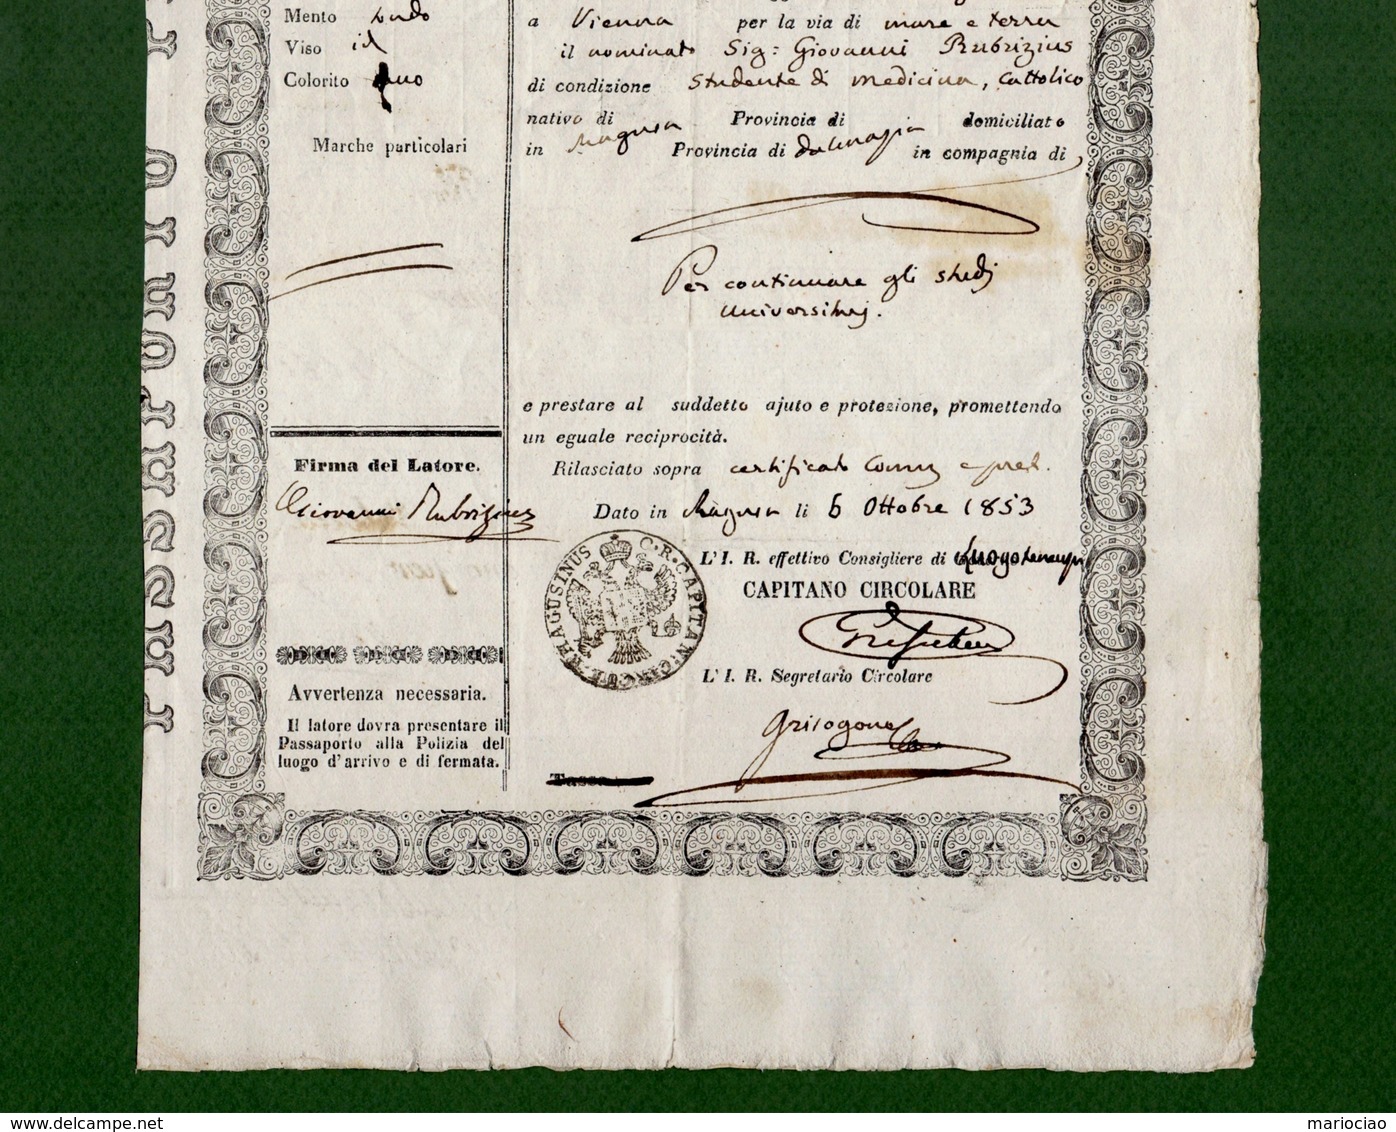 Mento tondo
Viso id
Colorito
Marche particolari
a Vienna per la via di mare e terra
il nominato Sig: Giovanni Rubrizius
di condizione Studente di Medicina, Cattolico
nativo di Provincia di domiciliato
in Ragusa Provincia di Dalmazia in compagnia di
Per continuare gli studj
universitarj.
e prestare al suddetto ajuto e protezione, promettendo
un eguale reciprocità.
Rilasciato sopra certificato
Dato in Ragusa li 6 Ottobre 1853
L' I. R. effettivo Consigliere di Luogotenenza
CAPITANO CIRCOLARE
L' I. R. Segretario Circolare
Grisogono
Firma del Latore.
Giovanni Rubrizius
RHAGUSINUS C. R. CAPITAN: CIRCUL
Avvertenza necessaria.
Il latore dovra presentare il
Passaporto alla Polizia del
luogo d'arrivo e di fermata.
PASSAPORTO
www.delcampe.net
mariociao